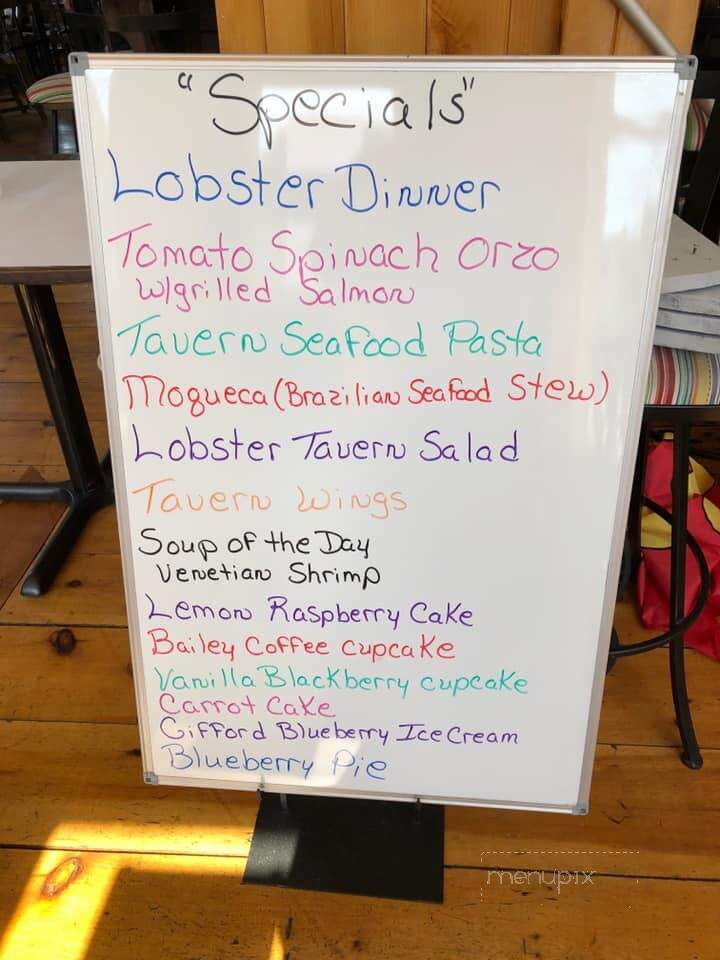 "Specials"
Lobster Dinner
Tomato Spinach Orzo
w/grilled Salmon
Tavern Seafood Pasta
Moqueca (Brazilian Seafood Stew)
Lobster Tavern Salad
Tavern Wings
Soup of the Day
Venetian Shrimp
Lemon Raspberry Cake
Bailey Coffee cupcake
Vanilla Blackberry cupcake
Carrot Cake
Gifford Blueberry Ice Cream
Blueberry Pie
menupix